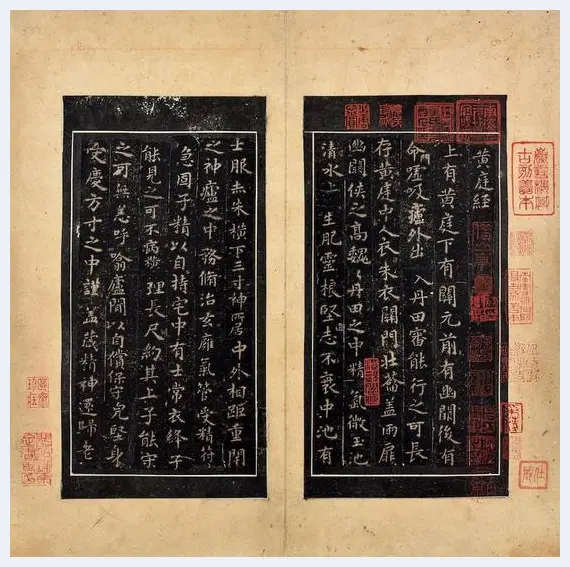 黄庭經
上有黄庭下有關元前有幽闕後有
命門噓吸廬外出入丹田審能行之可長
存黄庭中人衣朱衣關門壯籥蓋兩扉
幽闕俠之高魏〻丹田之中精氣微玉池
清水上生肥靈根堅志不衰中池有
士服赤朱橫下三寸神所居中外相距重閉
之神廬之中務脩治玄膺氣管受精符
急固子精以自持宅中有士常衣絳子
能見之可不病橫理長尺約其上子能守
之可無恙呼噏廬間以自償保守完堅身
受慶方寸之中謹蓋藏精神還歸老